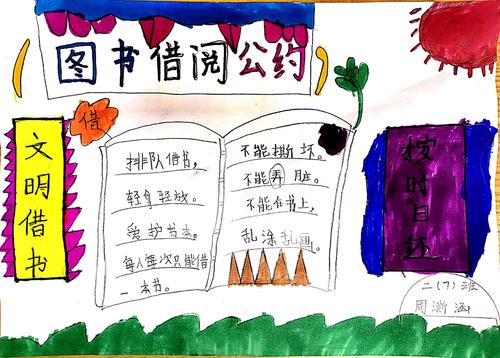 图书借阅公约
借
文明借书
排队借书，
轻拿轻放。
爱护书本。
每人每次只能借
一本书。
不能撕坏。
不能弄脏。
不能在书上，
乱涂乱画。
按时日还
二(7)班
周渐涵